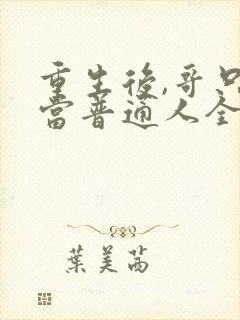 重生後,哥只
當普通人全
葉美茜